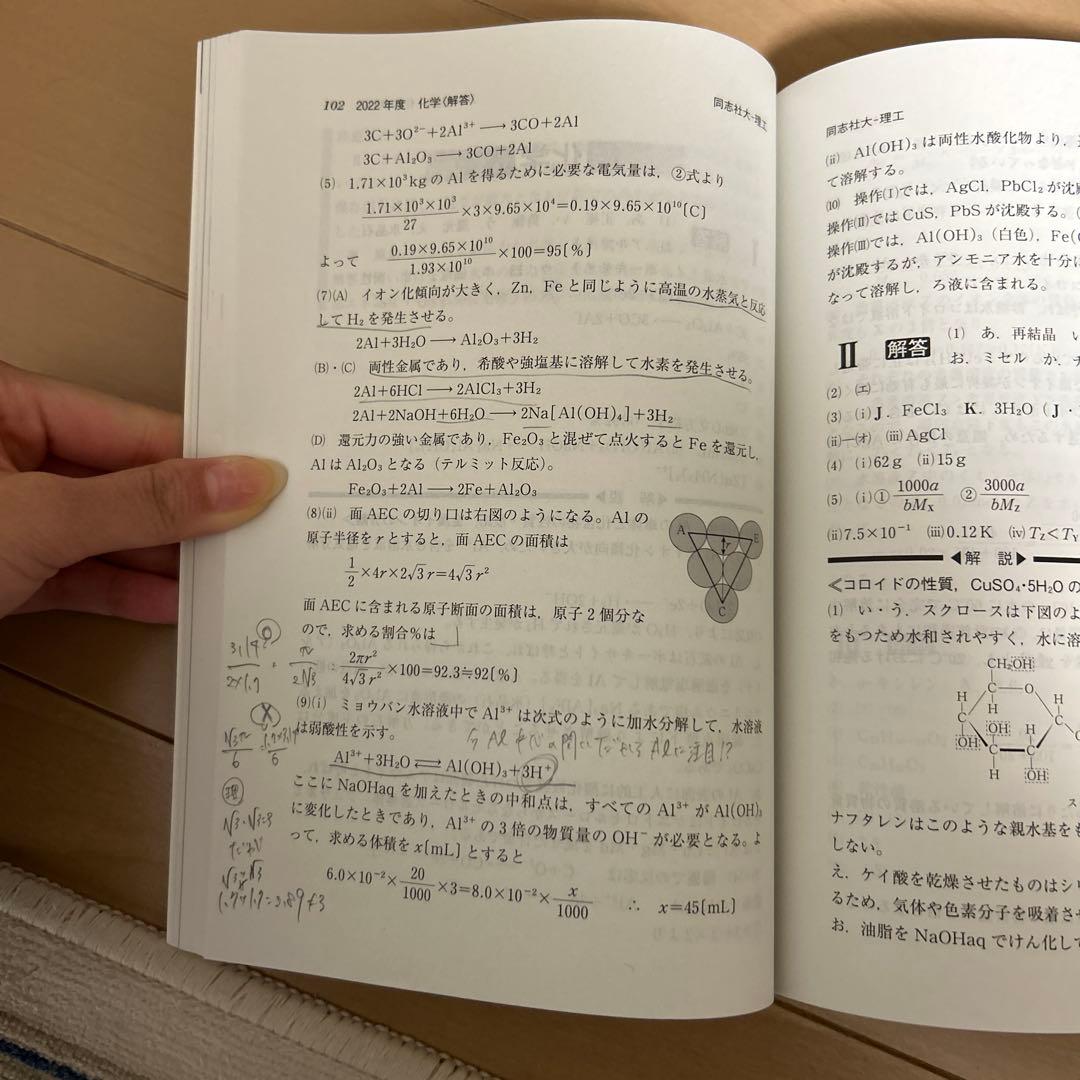 102 2022年度 化学〈解答〉 同志社大-理工
3C+3O²⁻+2Al³⁺ ⟶ 3CO+2Al
3C+Al₂O₃ ⟶ 3CO+2Al
(5) 1.71×10³kg の Al を得るために必要な電気量は，②式より
1.71×10³×10³/27 ×3×9.65×10⁴=0.19×9.65×10¹⁰〔C〕
よって 0.19×9.65×10¹⁰/1.93×10¹⁰ ×100=95〔％〕
(7)(A) イオン化傾向が大きく，Zn，Fe と同じように高温の水蒸気と反応
して H₂ を発生させる。
2Al+3H₂O ⟶ Al₂O₃+3H₂
(B)・(C) 両性金属であり，希酸や強塩基に溶解して水素を発生させる。
2Al+6HCl ⟶ 2AlCl₃+3H₂
2Al+2NaOH+6H₂O ⟶ 2Na[Al(OH)₄]+3H₂
(D) 還元力の強い金属であり，Fe₂O₃ と混ぜて点火すると Fe を還元し，
Al は Al₂O₃ となる（テルミット反応）。
Fe₂O₃+2Al ⟶ 2Fe+Al₂O₃
(8)(ii) 面 AEC の切り口は右図のようになる。Al の
原子半径を r とすると，面 AEC の面積は
A E
r
C
1/2 ×4r×2√3 r=4√3 r²
面 AEC に含まれる原子断面の面積は，原子2個分な
ので，求める割合％は
2πr²/4√3 r² ×100=92.3≒92〔％〕
(9)(i) ミョウバン水溶液中で Al³⁺ は次式のように加水分解して，水溶液
は弱酸性を示す。
Al³⁺+3H₂O ⇄ Al(OH)₃+3H⁺
ここに NaOHaq を加えたときの中和点は，すべての Al³⁺ が Al(OH)₃
に変化したときであり，Al³⁺ の3倍の物質量の OH⁻ が必要となる。よ
って，求める体積を x〔mL〕とすると
6.0×10⁻²× 20/1000 ×3=8.0×10⁻²× x/1000 ∴ x=45〔mL〕
π/2√3
√3π/6
√3・√3=3
√3×√3
1.7×1.7=2.89≠3
同志社大-理工
(ii) Al(OH)₃ は両性水酸化物より，
て溶解する。
(10) 操作(Ⅰ)では，AgCl，PbCl₂ が沈
操作(Ⅱ)では CuS，PbS が沈殿する。
操作(Ⅲ)では，Al(OH)₃（白色），Fe(
が沈殿するが，アンモニア水を十分に
なって溶解し，ろ液に含まれる。
Ⅱ 解答 (1) あ．再結晶 い
お．ミセル か．
(2) (エ)
(3) (i) J．FeCl₃ K．3H₂O（J・
(ii)―(オ) (iii) AgCl
(4) (i) 62g (ii) 15g
(5) (i)① 1000a/bMx ② 3000a/bMz
(ii) 7.5×10⁻¹ (iii) 0.12K (iv) Tz<Ty
◀解 説▶
≪コロイドの性質，CuSO₄・5H₂O の
(1) い・う．スクロースは下図のよ
をもつため水和されやすく，水に溶
CH₂OH
C O
H H
C C
OH H
OH
C C
H OH
ス
ナフタレンはこのような親水基をも
しない。
え．ケイ酸を乾燥させたものはシリ
るため，気体や色素分子を吸着させ
お．油脂を NaOHaq でけん化して